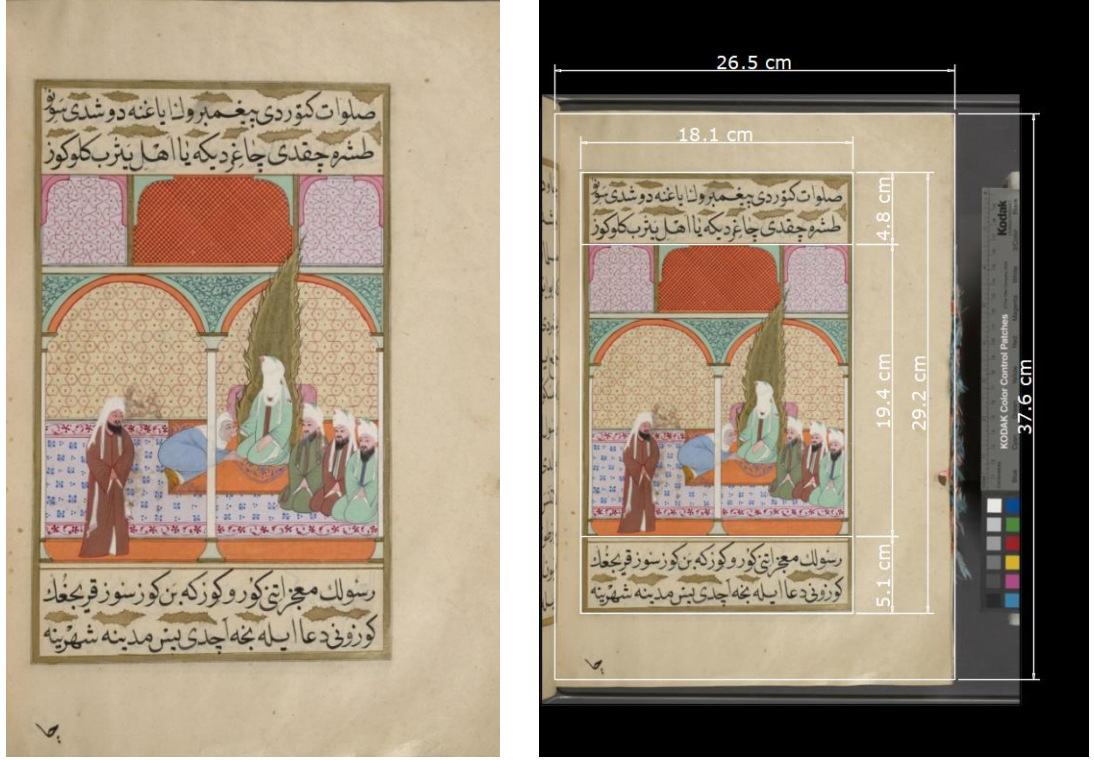 صلوات كتوردى پيغمبر ولنا ياغنه دوشدى
طشره چقدى چاغرديكه يا اهل يثرب كلوكوز
رسولك معجزاتنى كور و كوزكه بن كورسوز قريجغك
كوزونى دعا ايله نجه آچدى پس مدينه شهرينه
26.5 cm
18.1 cm
صلوات كتوردى پيغمبر ولنا ياغنه دوشدى
طشره چقدى چاغرديكه يا اهل يثرب كلوكوز
رسولك معجزاتنى كور و كوزكه بن كورسوز قريجغك
كوزونى دعا ايله نجه آچدى پس مدينه شهرينه
4.8 cm
19.4 cm
5.1 cm
29.2 cm
37.6 cm
Kodak
KODAK Color Control Patches